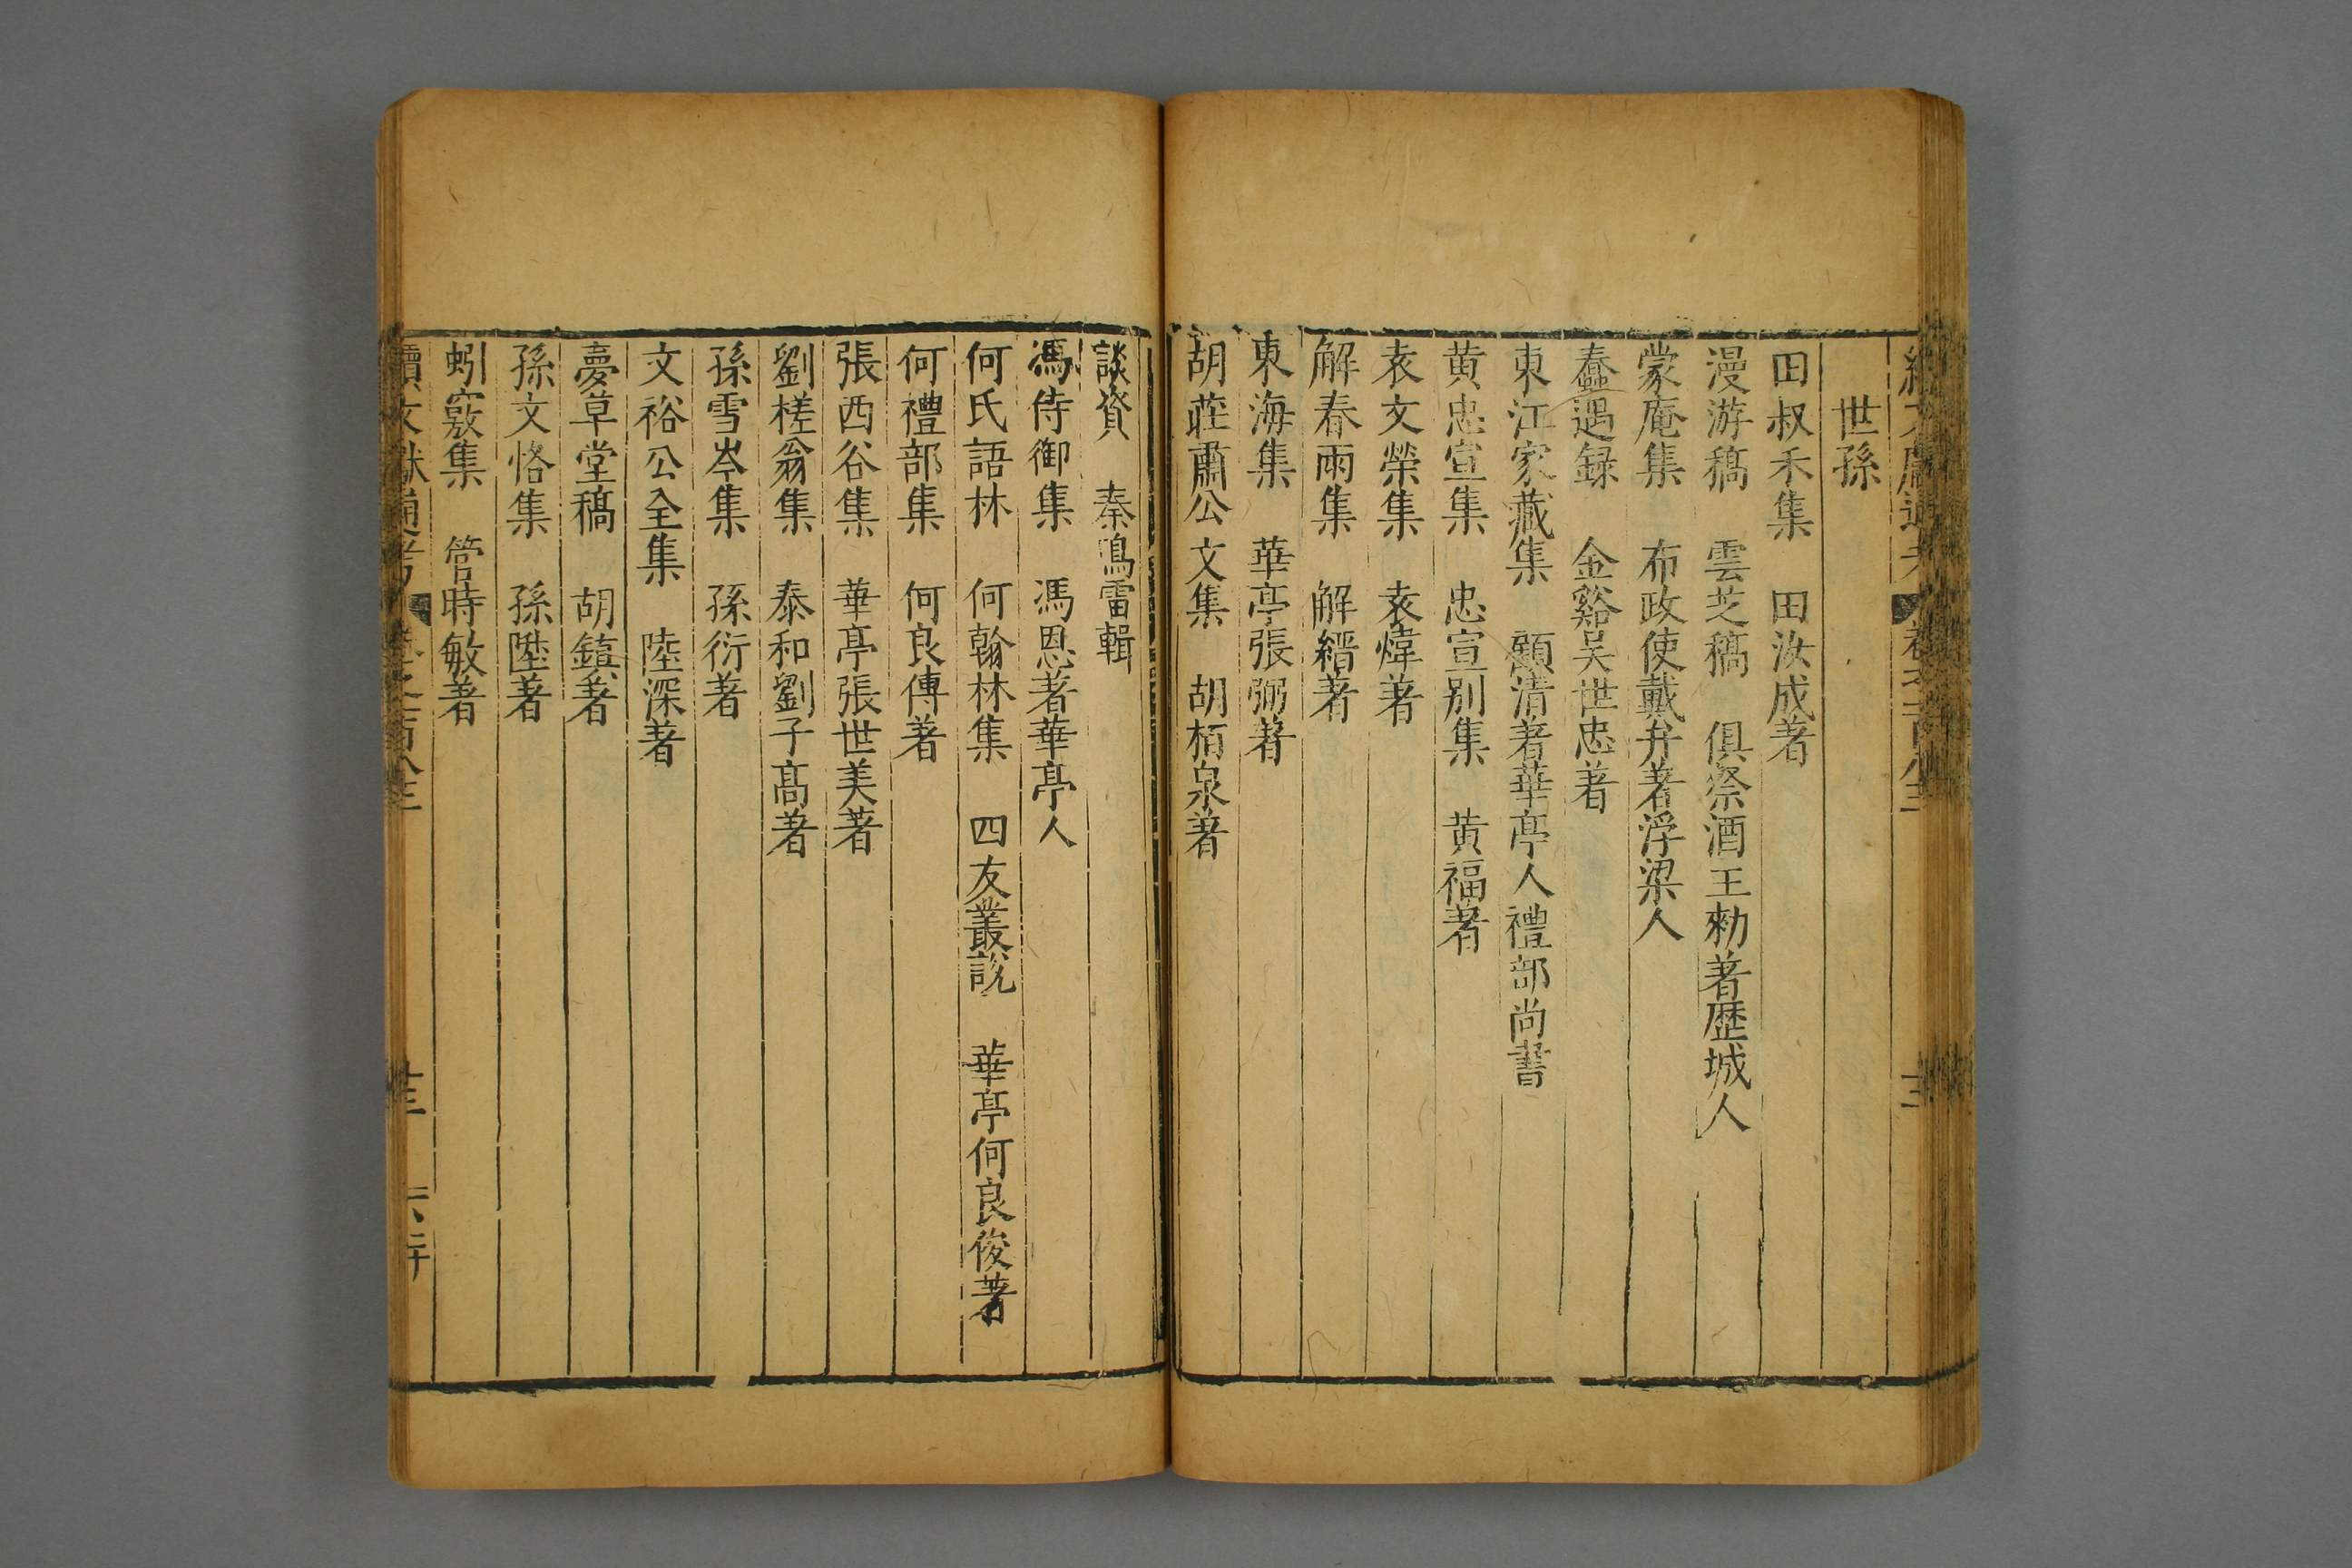 世孫
田叔禾集　田汝成著
漫游稿　雲芝稿　俱祭酒王勑著歷城人
蒙庵集　布政使戴弁著浮梁人
蠢遇録　金谿吴世忠著
東江家藏集　顧清著華亭人禮部尚書
黄忠宣集　忠宣别集　黄福著
袁文榮集　袁煒著
解春雨集　解縉著
東海集　華亭張弼著
胡莊肅公文集　胡栢泉著
談資　秦鳴雷輯
馮侍御集　馮恩著華亭人
何氏語林　何翰林集　四友叢說　華亭何良俊著
何禮部集　何良傳著
張西谷集　華亭張世美著
劉槎翁集　泰和劉子髙著
孫雪岑集　孫衍著
文裕公全集　陸深著
夢草堂稿　胡鎮著
孫文恪集　孫陞著
蚓竅集　管時敏著
續文獻通考